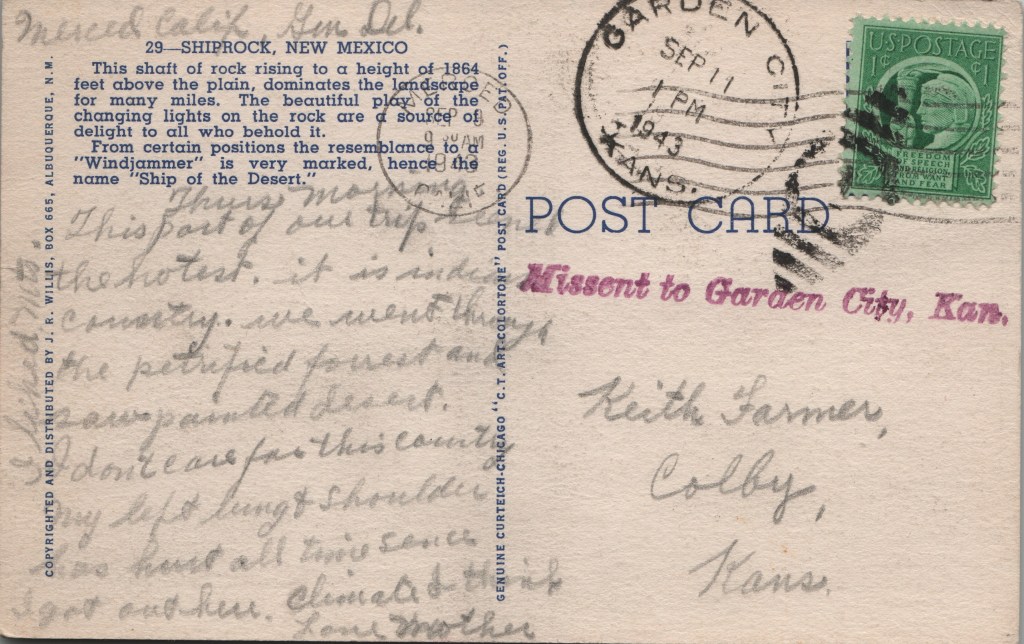 Merced Calif. Gen Del.
29—SHIPROCK, NEW MEXICO
This shaft of rock rising to a height of 1864
feet above the plain, dominates the landscape
for many miles. The beautiful play of the
changing lights on the rock are a source of
delight to all who behold it.
From certain positions the resemblance to a
"Windjammer" is very marked, hence the
name "Ship of the Desert."
Thurs morning
This part of our trip
the hotest. it is indian
country. we went through
the petrified forrest and
saw painted desert.
I dont care for this country
My left lung & shoulder
has hurt all time sence
I got out here. Climate I think
Love Mother
I liked Mts.
COPYRIGHTED AND DISTRIBUTED BY J. R. WILLIS, BOX 665, ALBUQUERQUE, N. M.
GENUINE CURTEICH-CHICAGO "C.T. ART-COLORTONE" POST CARD (REG. U.S. PAT. OFF.)
SEP 9
9 30 AM
1943
GARDEN CITY
SEP 11
1 PM
1943
KANS.
U.S. POSTAGE
1¢ ¢1
FREEDOM
OF SPEECH
AND RELIGION
FROM WANT
AND FEAR
POST CARD
Missent to Garden City, Kan.
Keith Farmer,
Colby,
Kans.